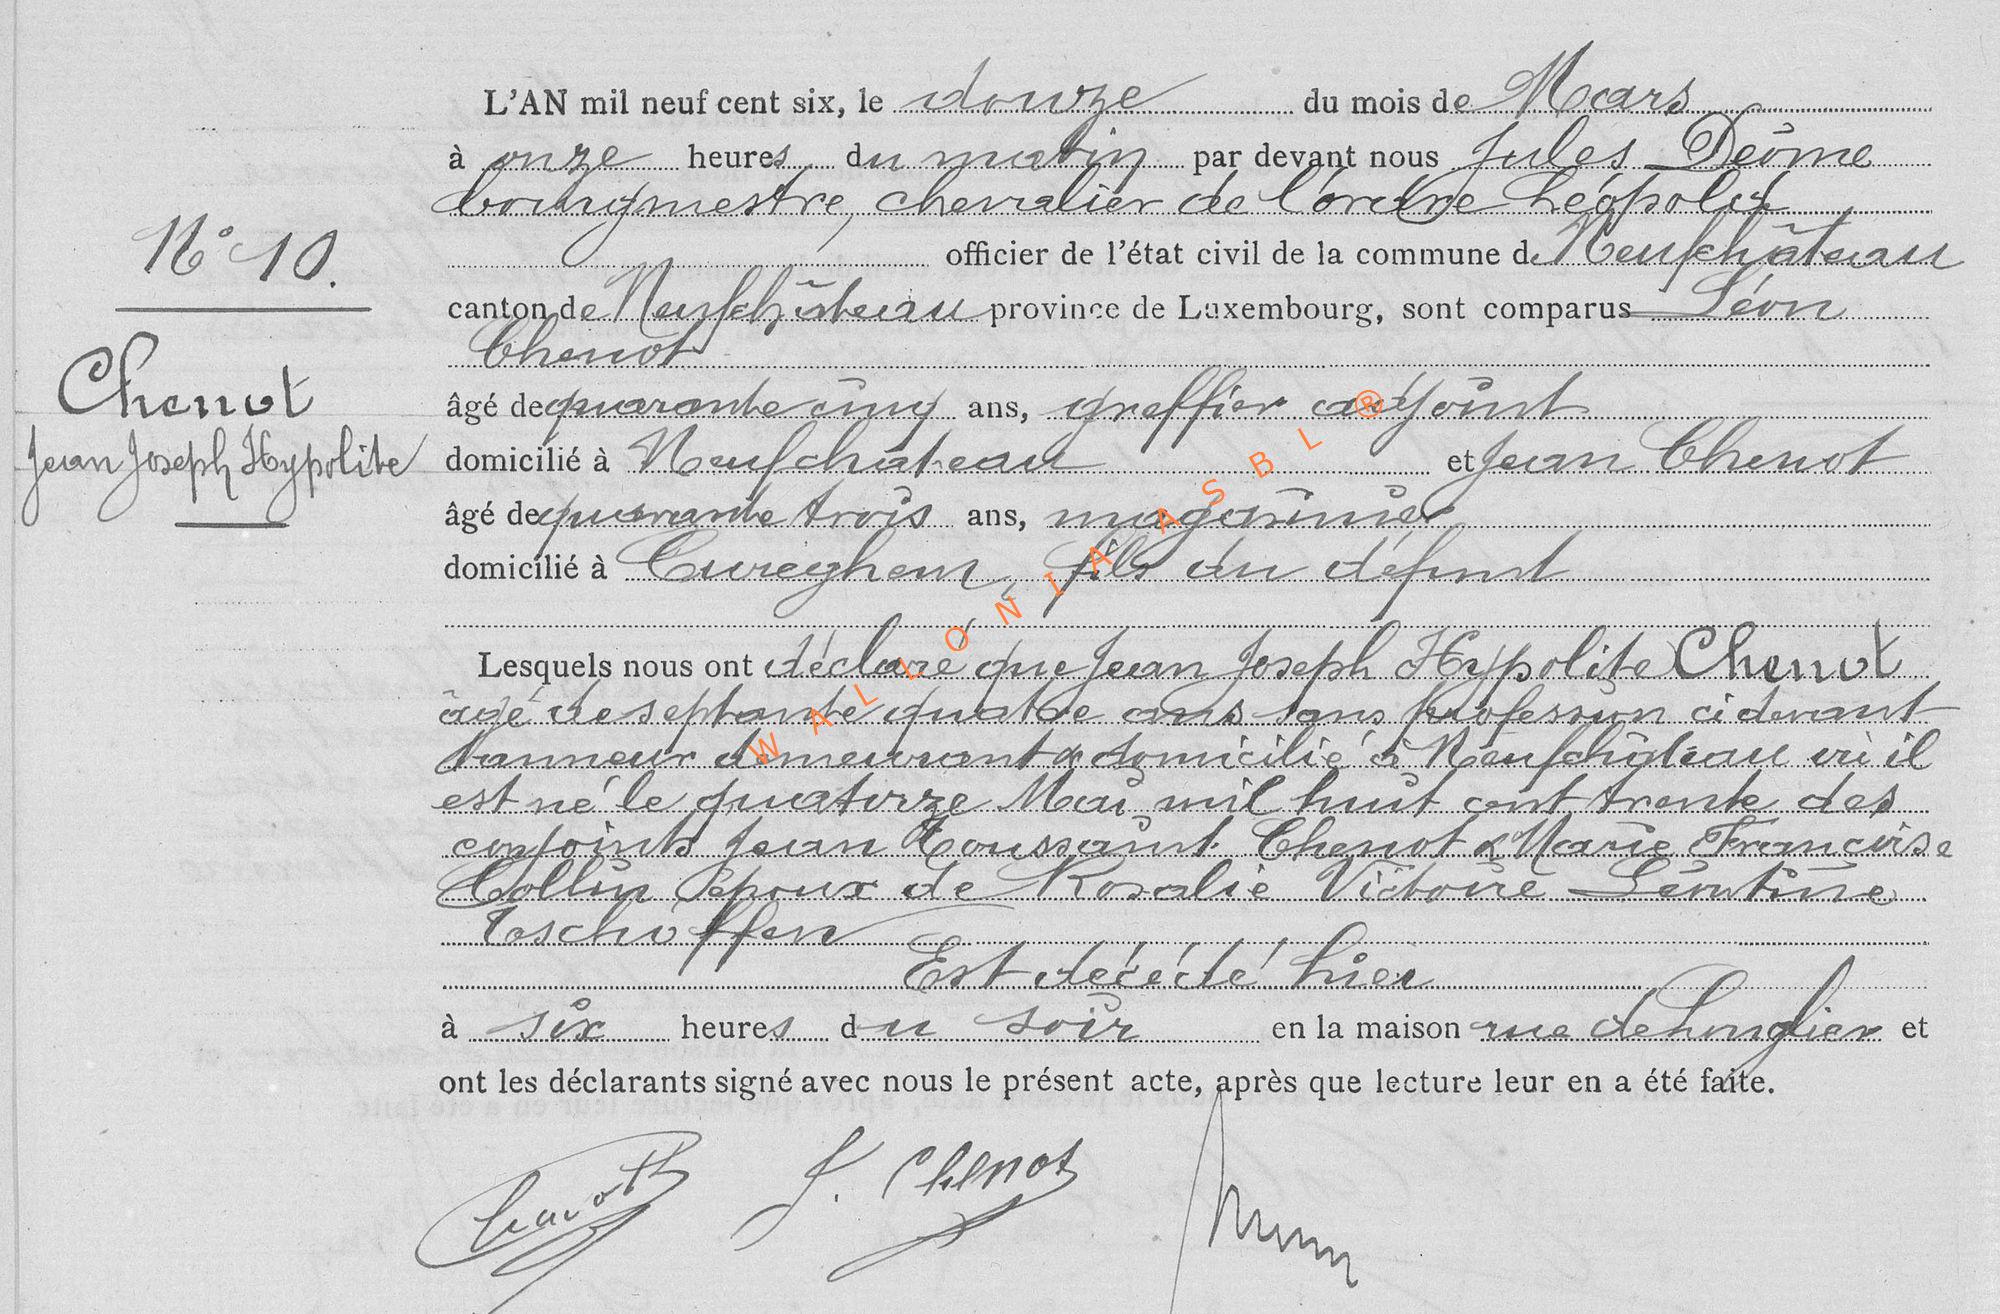 L'AN mil neuf cent six, le douze du mois de Mars
à onze heures du matin par devant nous Jules Déôme
bourgmestre, chevalier de l'ordre Léopold
N° 10.
officier de l'état civil de la commune de Neufchâteau
canton de Neufchâteau province de Luxembourg, sont comparus Léon
Chenot
âgé de quarante cinq ans, greffier adjoint
Chenot
Jean Joseph Hypolite
domicilié à Neufchâteau et Jean Chenot
âgé de quarante trois ans, magasinier
domicilié à Cureghem, fils du défunt
Lesquels nous ont déclaré que Jean Joseph Hypolite Chenot
âgé de septante quatre ans sans profession ci devant
tanneur demeurant & domicilié à Neufchâteau où il
est né le quatorze Mai mil huit cent trente des
conjoints Jean Toussaint Chenot & Marie Françoise
Collin époux de Rosalie Victoire Léontine
Tschoffen
Est décédé hier
à six heures du soir en la maison rue de Longlier et
ont les déclarants signé avec nous le présent acte, après que lecture leur en a été faite.
Chenot J. Chenot
WALLONIA ASBL ®